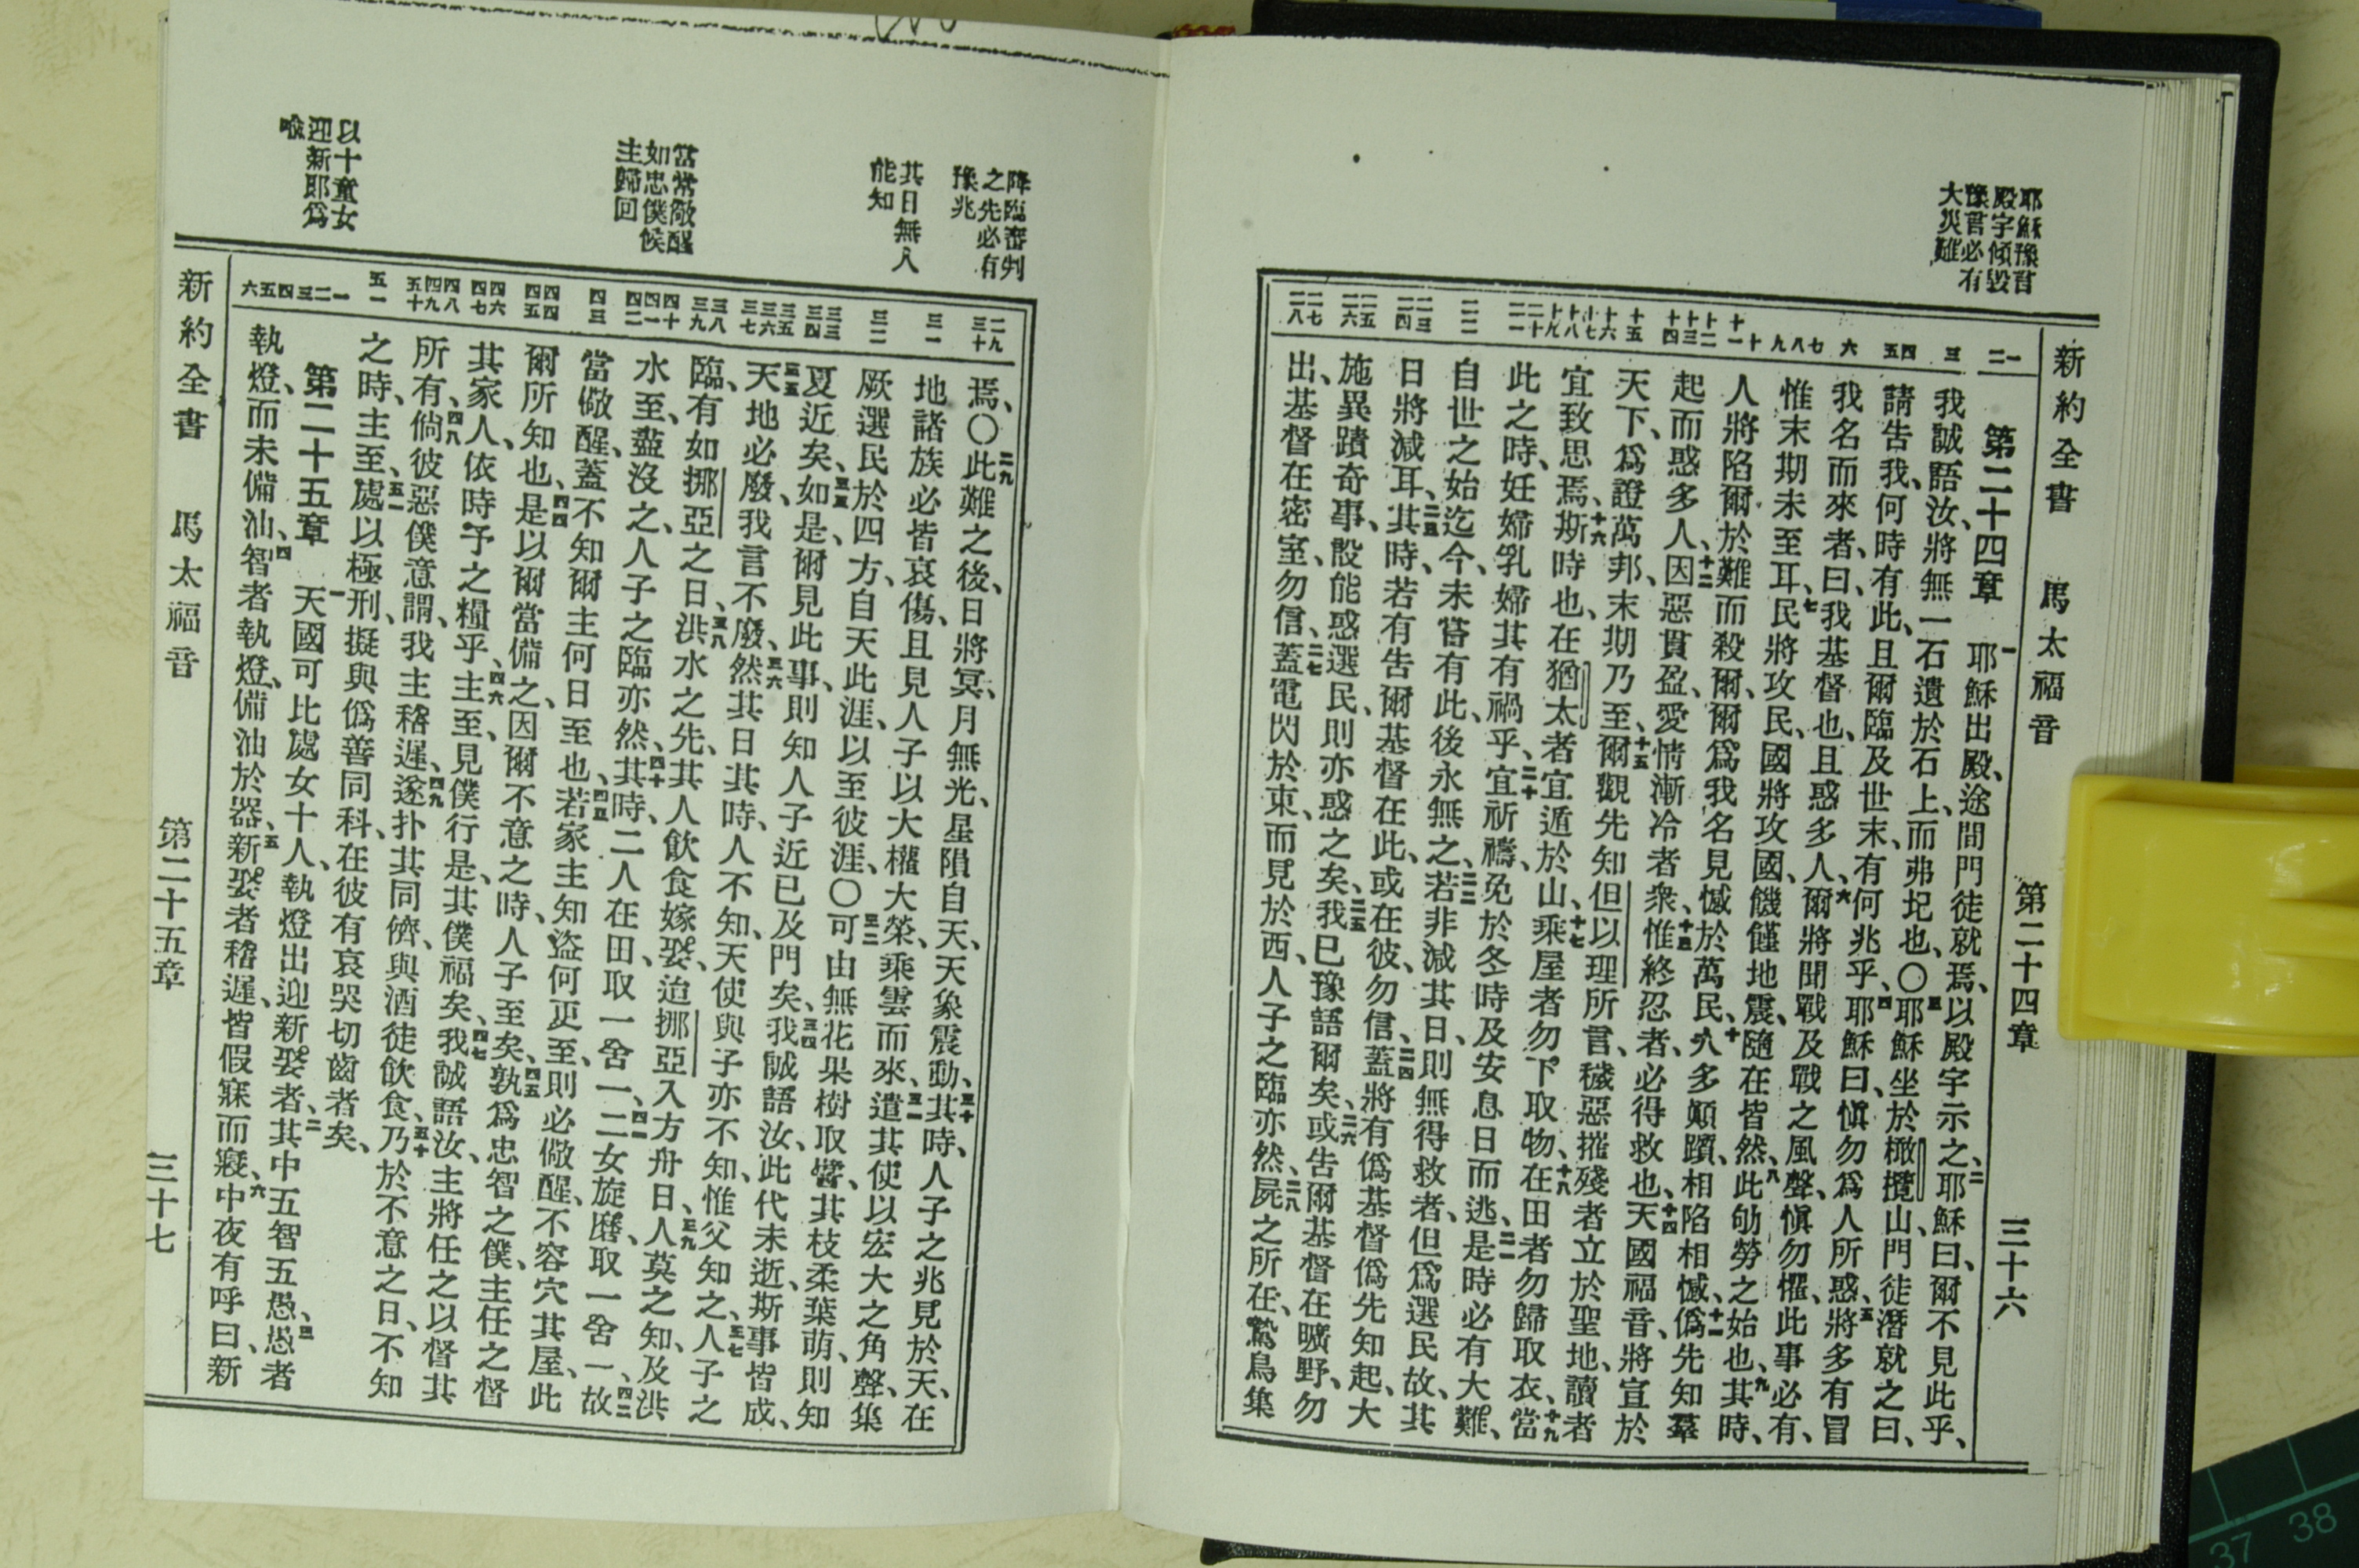 新約全書 馬太福音 第二十四章 三十六
耶穌豫言
殿宇傾毀
豫言必有
大災難
一二 三 四五 六 七八九 十十一 十二十三十四 十五 十六十七十八十九 二十二一 二二 二三二四 二五二六 二七二八
第二十四章 一耶穌出殿、途間門徒就焉、以殿宇示之、二耶穌曰、爾不見此乎、
我誠語汝、將無一石遺於石上、而弗圮也、〇三耶穌坐於橄欖山、門徒潛就之曰、
請告我、何時有此、且爾臨及世末、有何兆乎、四耶穌曰、愼勿爲人所惑、五將多有冒
我名而來者、曰、我基督也、且惑多人、六爾將聞戰及戰之風聲、愼勿懼、此事必有、
惟末期未至耳、七民將攻民、國將攻國、饑饉地震、隨在皆然、八此劬勞之始也、九其時、
人將陷爾於難而殺爾、爾爲我名見憾於萬民、十人多顚躓、相陷相憾、十一僞先知羣
起而惑多人、十二因惡貫盈、愛情漸冷者衆、十三惟終忍者、必得救也、十四天國福音、將宣於
天下、爲證萬邦、末期乃至、十五爾觀先知但以理所言、穢惡摧殘者立於聖地、讀者
宜致思焉、十六斯時也、在猶太者宜遁於山、十七乘屋者勿下取物、十八在田者勿歸取衣、十九當
此之時、妊婦乳婦其有禍乎、二十宜祈禱、免於冬時及安息日而逃、二一是時必有大難、
自世之始迄今、未嘗有此、後永無之、二二若非減其日、則無得救者、但爲選民故、其
日將減耳、二三其時、若有告爾基督在此、或在彼、勿信、二四蓋將有僞基督僞先知起、大
施異蹟奇事、設能惑選民、則亦惑之矣、二五我已豫語爾矣、二六或告爾基督在曠野、勿
出、基督在密室、勿信、二七蓋電閃於東、而見於西、人子之臨亦然、二八屍之所在、鷙鳥集
降臨審判
之先必有
豫兆
其日無人
能知
當常儆醒
如忠僕候
主歸回
以十童女
迎新郎爲
喩
二九三十 三一 三二 三三三四 三五三六三七 三八三九 四十四一四二 四三 四四四五 四六四七 四八四九五十 五一 一二三四五六
焉、〇二九此難之後、日將冥、月無光、星隕自天、天象震動、三十其時、人子之兆見於天、在
地諸族必皆哀傷、且見人子以大權大榮、乘雲而來、三一遣其使以宏大之角聲、集
厥選民於四方、自天此涯、以至彼涯、〇三二可由無花果樹取譬、其枝柔葉萌、則知
夏近矣、三三如是、爾見此事、則知人子近已及門矣、三四我誠語汝、此代未逝、斯事皆成、
三五天地必廢、我言不廢、三六然其日其時、人不知、天使與子亦不知、惟父知之、三七人子之
臨、有如挪亞之日、三八洪水之先、其人飮食嫁娶、迨挪亞入方舟日、三九人莫之知、及洪
水至、盡沒之、人子之臨亦然、四十其時、二人在田、取一舍一、四一二女旋磨、取一舍一、四二故
當儆醒、蓋不知爾主何日至也、四三若家主知盜何更至、則必儆醒、不容穴其屋、此
爾所知也、四四是以爾當備之、因爾不意之時、人子至矣、四五孰爲忠智之僕、主任之督
其家人、依時予之糧乎、四六主至、見僕行是、其僕福矣、四七我誠語汝、主將任之以督其
所有、四八倘彼惡僕意謂、我主稽遲、四九遂扑其同儕、與酒徒飮食、五十乃於不意之日、不知
之時、主至、五一處以極刑、擬與僞善同科、在彼有哀哭切齒者矣、
第二十五章 一天國可比處女十人、執燈出迎新娶者、二其中五智五愚、三愚者
執燈、而未備油、四智者執燈、備油於器、五新娶者稽遲、皆假寐而寢、六中夜有呼曰、新
新約全書 馬太福音 第二十五章 三十七
37 38